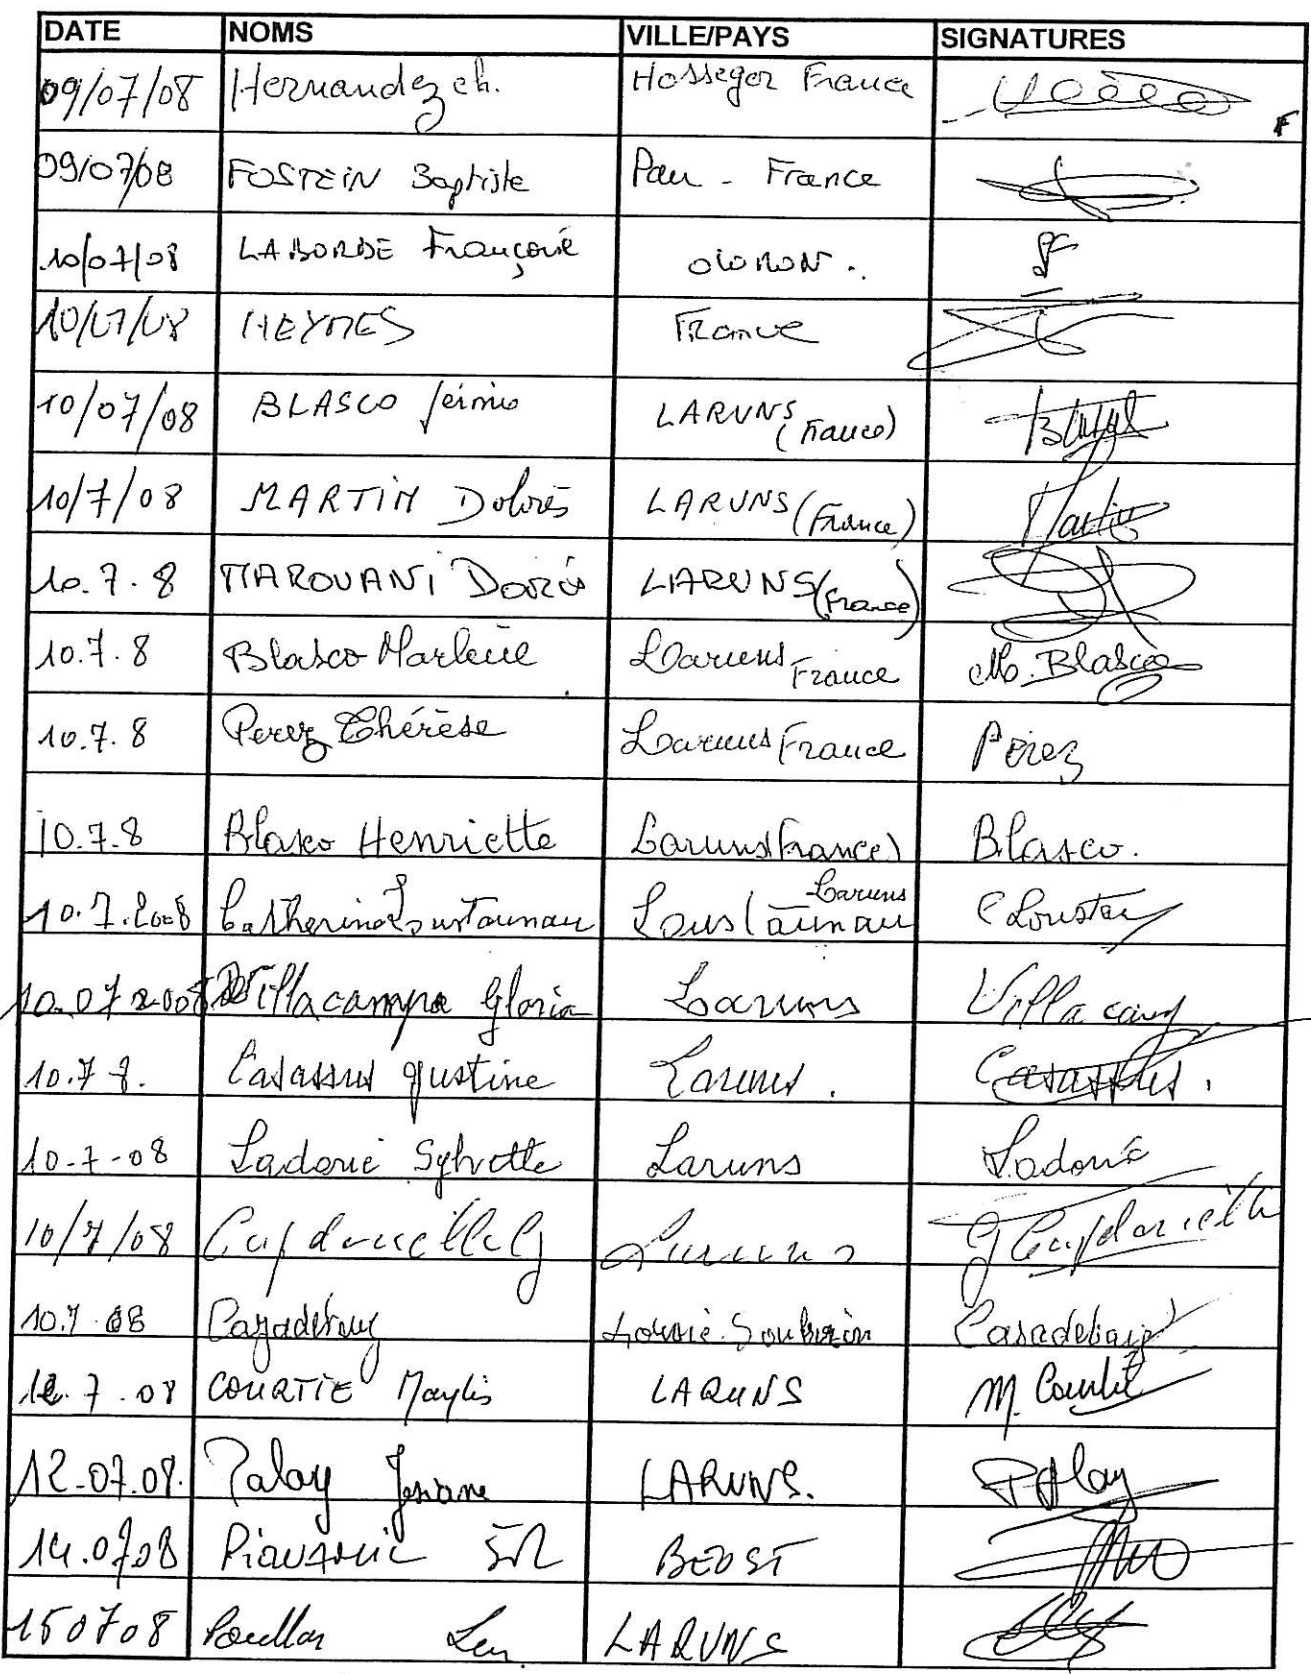 DATE NOMS VILLE/PAYS SIGNATURES
09/07/08 Hernandez ch. Hossegor France
09/07/08 FOSTEIN Baptiste Pau - France
10/07/08 LABORDE Françoise OLORON.
10/07/08 HEYMES France
10/07/08 BLASCO LARUNS (France)
10/7/08 MARTIN Dolorès LARUNS (France) Martin
10.7.8 MAROUANI LARUNS (France)
10.7.8 Blasco Marlène Laruns France M. Blasco
10.7.8 Perez Thérèse Laruns France Perez
10.7.8 Blasco Henriette Laruns (France) Blasco.
10.7.2008 Catherine Loustaunau Loustaunau Laruns C Loustau
10.07.2008 Villacampa Gloria Laruns Villacamp
10.7 8. Casassus Justine Laruns. Casassus.
10-7-08 Ladonie Sylvette Laruns Ladonie
10/7/08 Capdevielle G Laruns G Capdevielle
10.7.08 Cazadebaig Casadebaig
12.7.08 COURTIE Maylis LARUNS M. Courtié
12.07.08. Palay Josiane LARUNS. Palay
14.0708 BEOST
150708 LARUNS